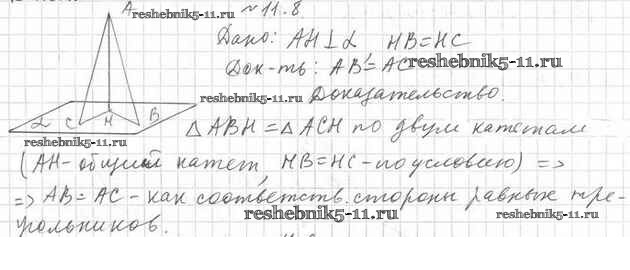 A reshebnik5-11.ru № 11.8
Дано: AH⊥α HB=HC
reshebnik5-11.ru
Док-ть: AB=AC
reshebnik5-11.ru Доказательство.
α C H B
△ABH=△ACH по двум катетам
reshebnik5-11.ru
(AH-общий катет, HB=HC-по условию) =>
=> AB=AC-как соответств. стороны равных тре-
reshebnik5-11.ru reshebnik5-11.ru
угольников.